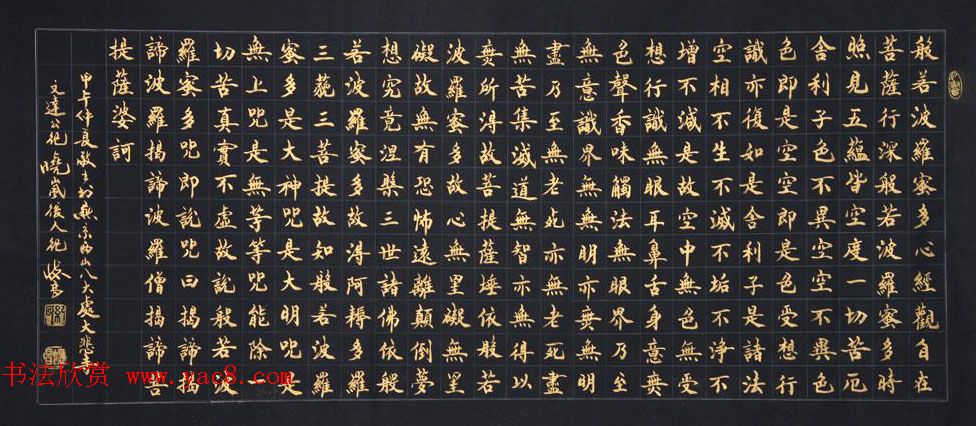 般若波羅蜜多心經觀自在
菩薩行深般若波羅蜜多時
照見五蘊皆空度一切苦厄
舍利子色不異空空不異色
色即是空空即是色受想行
識亦復如是舍利子是諸法
空相不生不滅不垢不淨不
增不減是故空中無色無受
想行識無眼耳鼻舌身意無
色聲香味觸法無眼界乃至
無意識界無無明亦無無明
盡乃至無老死亦無老死盡
無苦集滅道無智亦無得以
無所得故菩提薩埵依般若
波羅蜜多故心無罣礙無罣
礙故無有恐怖遠離顛倒夢
想究竟涅槃三世諸佛依般
若波羅蜜多故得阿耨多羅
三藐三菩提故知般若波羅
蜜多是大神咒是大明咒是
無上咒是無等等咒能除一
切苦真實不虛故說般若波
羅蜜多咒即說咒曰揭諦揭
諦波羅揭諦波羅僧揭諦菩
提薩婆訶
甲午仲夏敬書於燕京西山八大處大悲寺
文達公紀曉嵐後人紀
书法欣赏 www.yac8.com